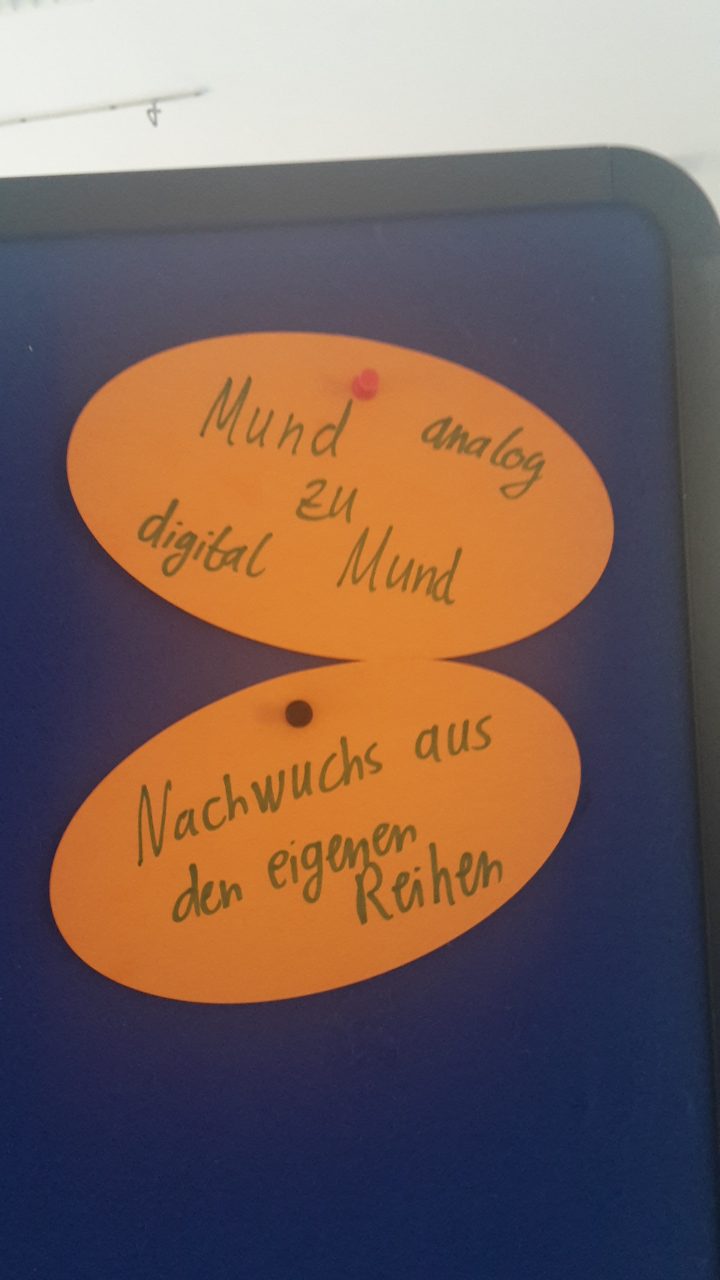 Mund analog
zu
digital Mund
Nachwuchs aus
den eigenen
Reihen